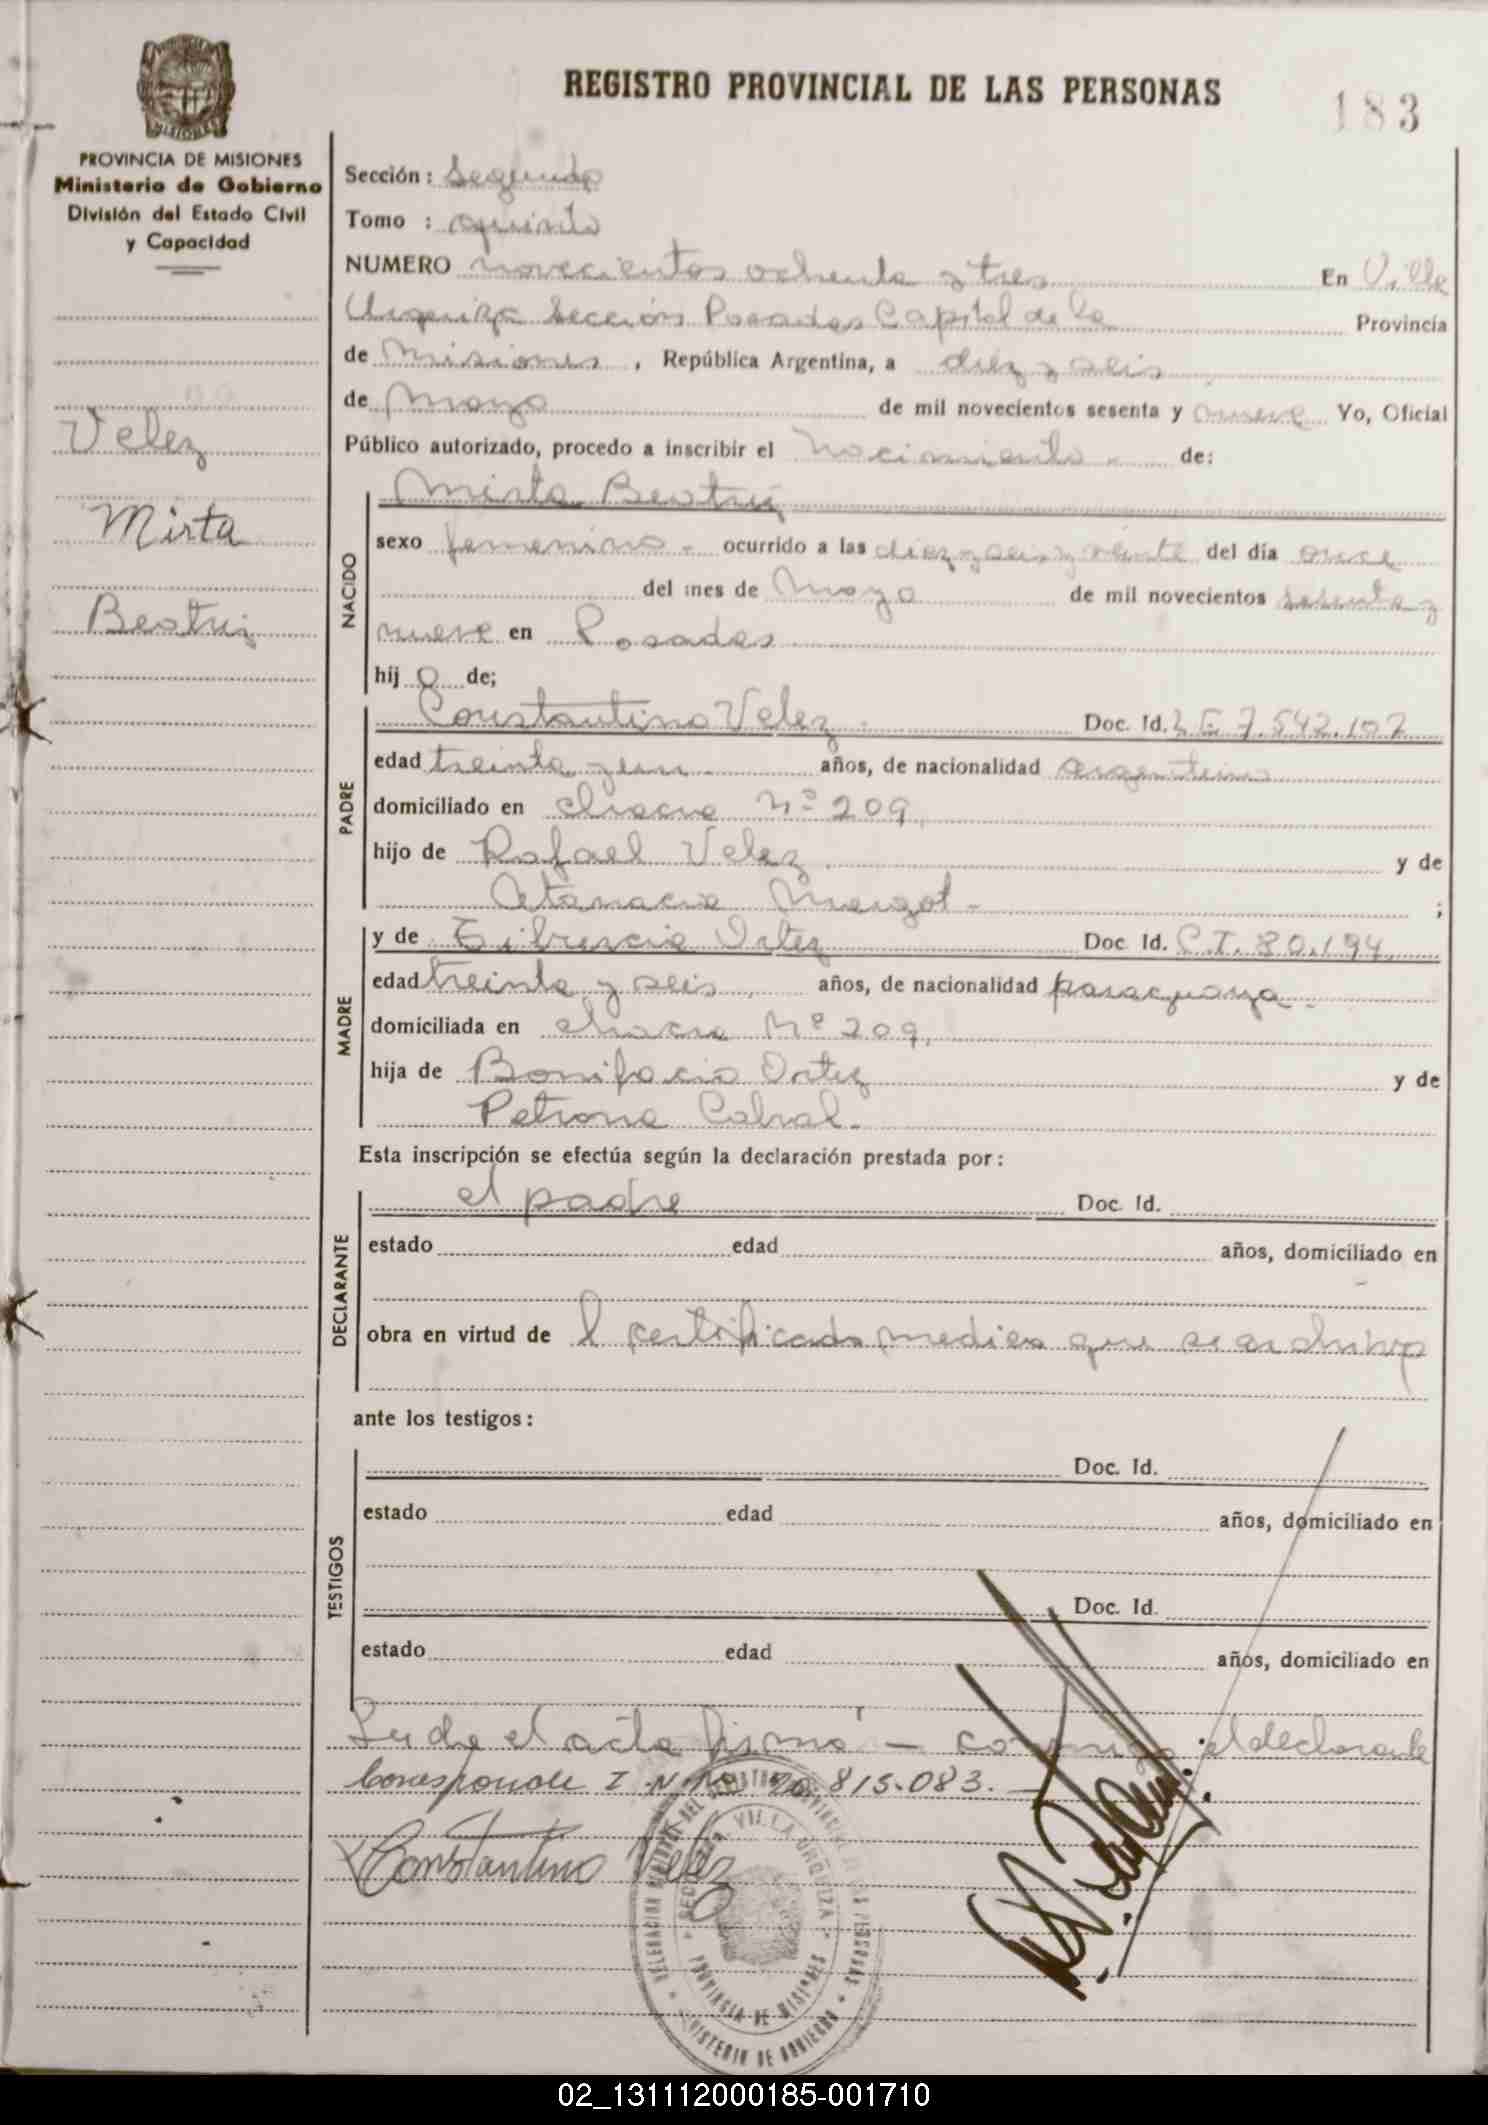 REGISTRO PROVINCIAL DE LAS PERSONAS
183
MISIONES
PROVINCIA DE MISIONES
Ministerio de Gobierno
División del Estado Civil
y Capacidad
Velez
Mirta
Beatriz
Sección: Segunda
Tomo : quinto
NUMERO novecientos ochenta y tres En Villa
Urquiza Sección Posadas Capital de la Provincia
de Misiones, República Argentina, a diez y seis
de Mayo de mil novecientos sesenta y nueve Yo, Oficial
Público autorizado, procedo a inscribir el Nacimiento de:
NACIDO
Mirta Beatriz
sexo femenino - ocurrido a las diez y seis y veinte del día once
del mes de Mayo de mil novecientos sesenta y
nueve en Posadas
hij a de;
PADRE
Constantino Velez Doc. Id. L E 7.542.107
edad treinta y un años, de nacionalidad argentino
domiciliado en chacra Nº 209,
hijo de Rafael Velez y de
Atanacia ;
MADRE
y de Tiburcia Ortiz Doc. Id. C.I. 80.194
edad treinta y seis años, de nacionalidad paraguaya.
domiciliada en chacra Nº 209,
hija de Bonifacio Ortiz y de
Petrona Cabral.
Esta inscripción se efectúa según la declaración prestada por:
DECLARANTE
el padre Doc. Id.
estado edad años, domiciliado en
obra en virtud de l certificado medico que se archiva
ante los testigos:
TESTIGOS
Doc. Id.
estado edad años, domiciliado en
Doc. Id.
estado edad años, domiciliado en
Leida el acta firmó - conmigo el declarante
Corresponde I.N. Nº 20.815.083.
Constantino Velez
SECCION 2da. VILLA URQUIZA
PROVINCIA DE MISIONES
MINISTERIO DE GOBIERNO
02_131112000185-001710